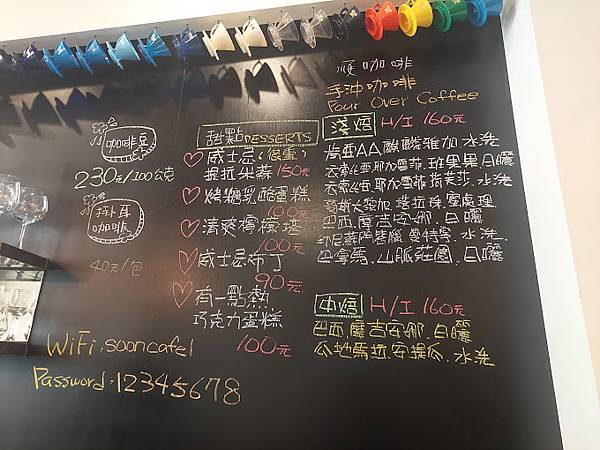 咖啡豆
230元/100公克
掛耳
咖啡
40元/包
甜點DESSERTS
威士忌(很重)
提拉米蘇 150元
烤糖乳酪蛋糕
100元
清爽檸檬塔
100元
威士忌布丁
90元
有一點熱
巧克力蛋糕
100元
WiFi:sooncafe1
Password:12345678
順咖啡
手沖咖啡
Pour Over Coffee
淺焙 H/I 160元
肯亞AA 酸酸雅加.水洗
衣索比亞.耶加雪菲.班果果.日曬
衣索比亞.耶加雪菲.荷芙莎.水洗
哥斯大黎加.塔拉珠.蜜處理
巴西.摩吉安娜.日曬
印尼蘇門答臘.曼特寧.水洗
巴拿馬.山脈莊園.日曬
中焙 H/I 160元
巴西.摩吉安娜.日曬
瓜地馬拉.安提瓜.水洗